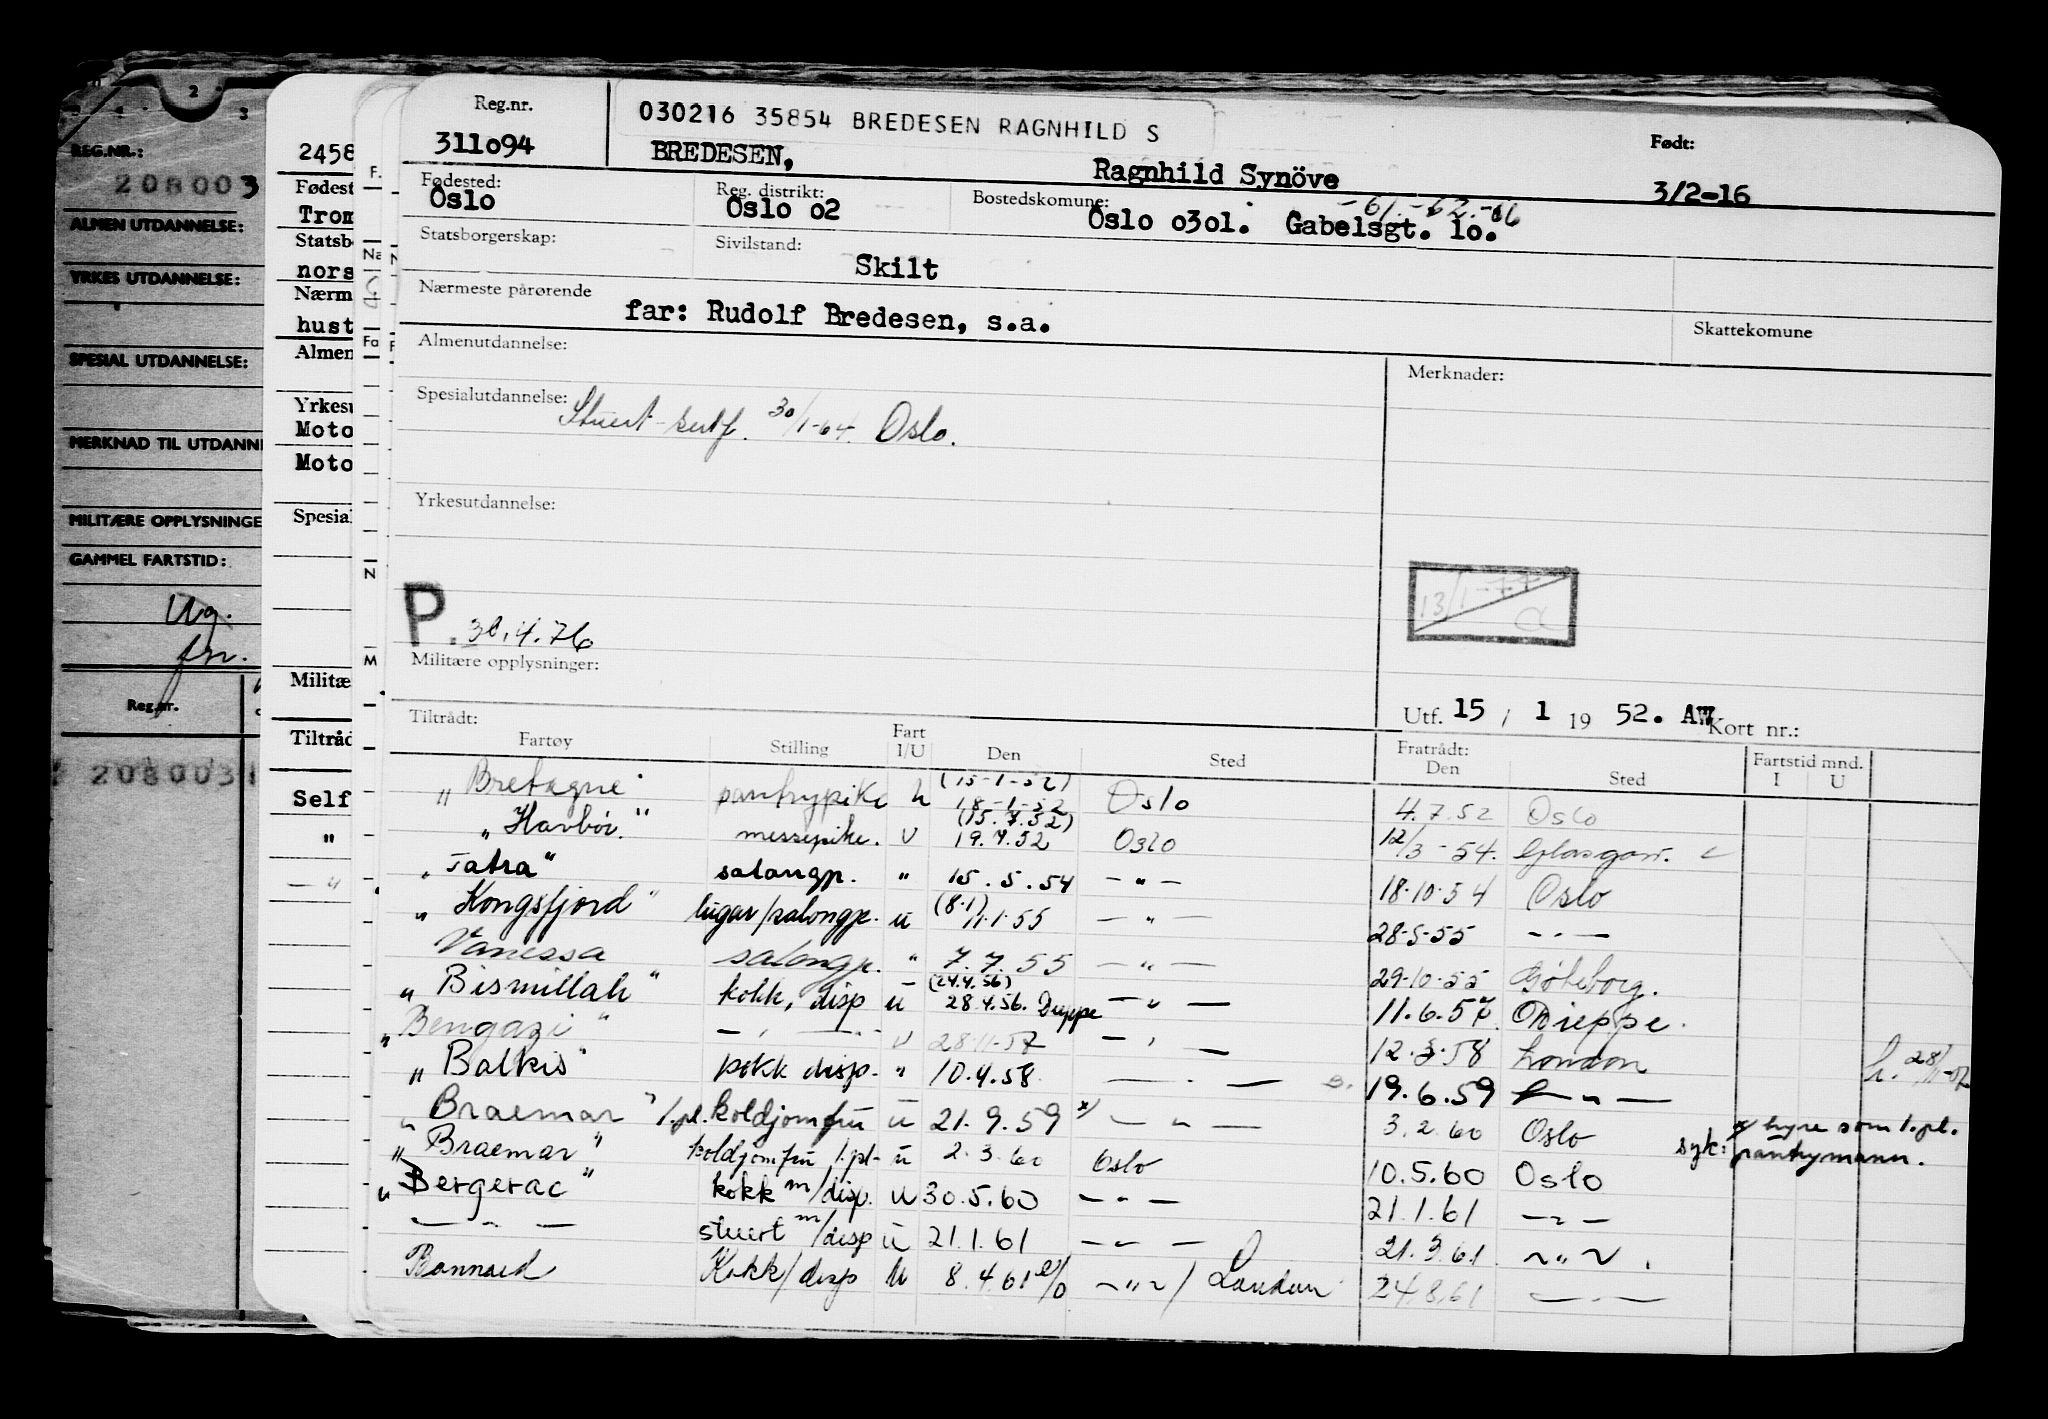 Reg.nr.
311o94
030216 35854 BREDESEN RAGNHILD S
BREDESEN, Ragnhild Synöve
Født:
3/2-16
Fødested: Oslo
Reg. distrikt: Oslo o2
Bostedskomune: Oslo o3o1. Gabelsgt. 1o.
-61.-62.-66
Statsborgerskap:
Sivilstand: Skilt
Nærmeste pårørende
far: Rudolf Bredesen, s.a.
Skattekomune
Almenutdannelse:
Merknader:
Spesialutdannelse: Stuert sertf. 30/1-64. Oslo.
Yrkesutdannelse:
13/1-77 a
P. 30.4.76
Militære opplysninger:
Utf. 15 / 1 19 52. AW Kort nr.:
Tiltrådt: Fartøy Stilling Fart I/U Den Sted Fratrådt: Den Sted Fartstid mnd. I U
"Bretagne" pantrypike (15-1-52) 18-1-52 Oslo 4.7.52 Oslo
"Havbør." messepike. U (15.7.52) 19.7.52 Oslo 12/3-54. Glasgow.
"Tatra" salongp. " 15.5.54 — " — 18-10-54 Oslo
"Kongsfjord" lugar/salongp. u (8.1) 11.1.55 — " — 28-5-55 — " —
Vanessa salongp. " 7.7.55 — " — 29-10-55 Göteborg.
"Bismillah" kokk, disp u (24.4.56) 28.4.56. Dieppe — " — 11.6.57. Dieppe.
"Bengazi" — " — u 28.11.57 — " — 12.3.58 London
h. 28/11-57
"Balkis" kokk disp. " 10.4.58 — " — 19.6.59 — " —
"Braemar" 1.pl. koldjomfru u 21.9.59 x) — " — 3.2.60 Oslo
x hyre som 1.pl. pantrymann.
syk:
"Braemar" koldjomfru 1.pl. u 2.3.60 Oslo 10.5.60 Oslo
"Bergerac" kokk m/disp. u 30.5.60 — " — 21.1.61 — " —
— " — stuert m/disp u 21.1.61 — " — 21.3.61 — " —
Bonnard Kokk/disp u 8.4.61 — " — / London 24.8.61 — " —
REG.NR.:
208003
ALMEN UTDANNELSE:
YRKES UTDANNELSE:
SPESIAL UTDANNELSE:
MERKNAD TIL UTDANNE
MILITÆRE OPPLYSNINGE
GAMMEL FARTSTID:
Ug.
fm.
Reg.nr.
2080031
2458
Fødest
Trom
Statsb
nors
Nærm
hust
Almen
Yrkesu
Moto
Moto
Spesial
Militæ
Tiltråd
Self
"
— " —
F.
Na
Fa
N
M